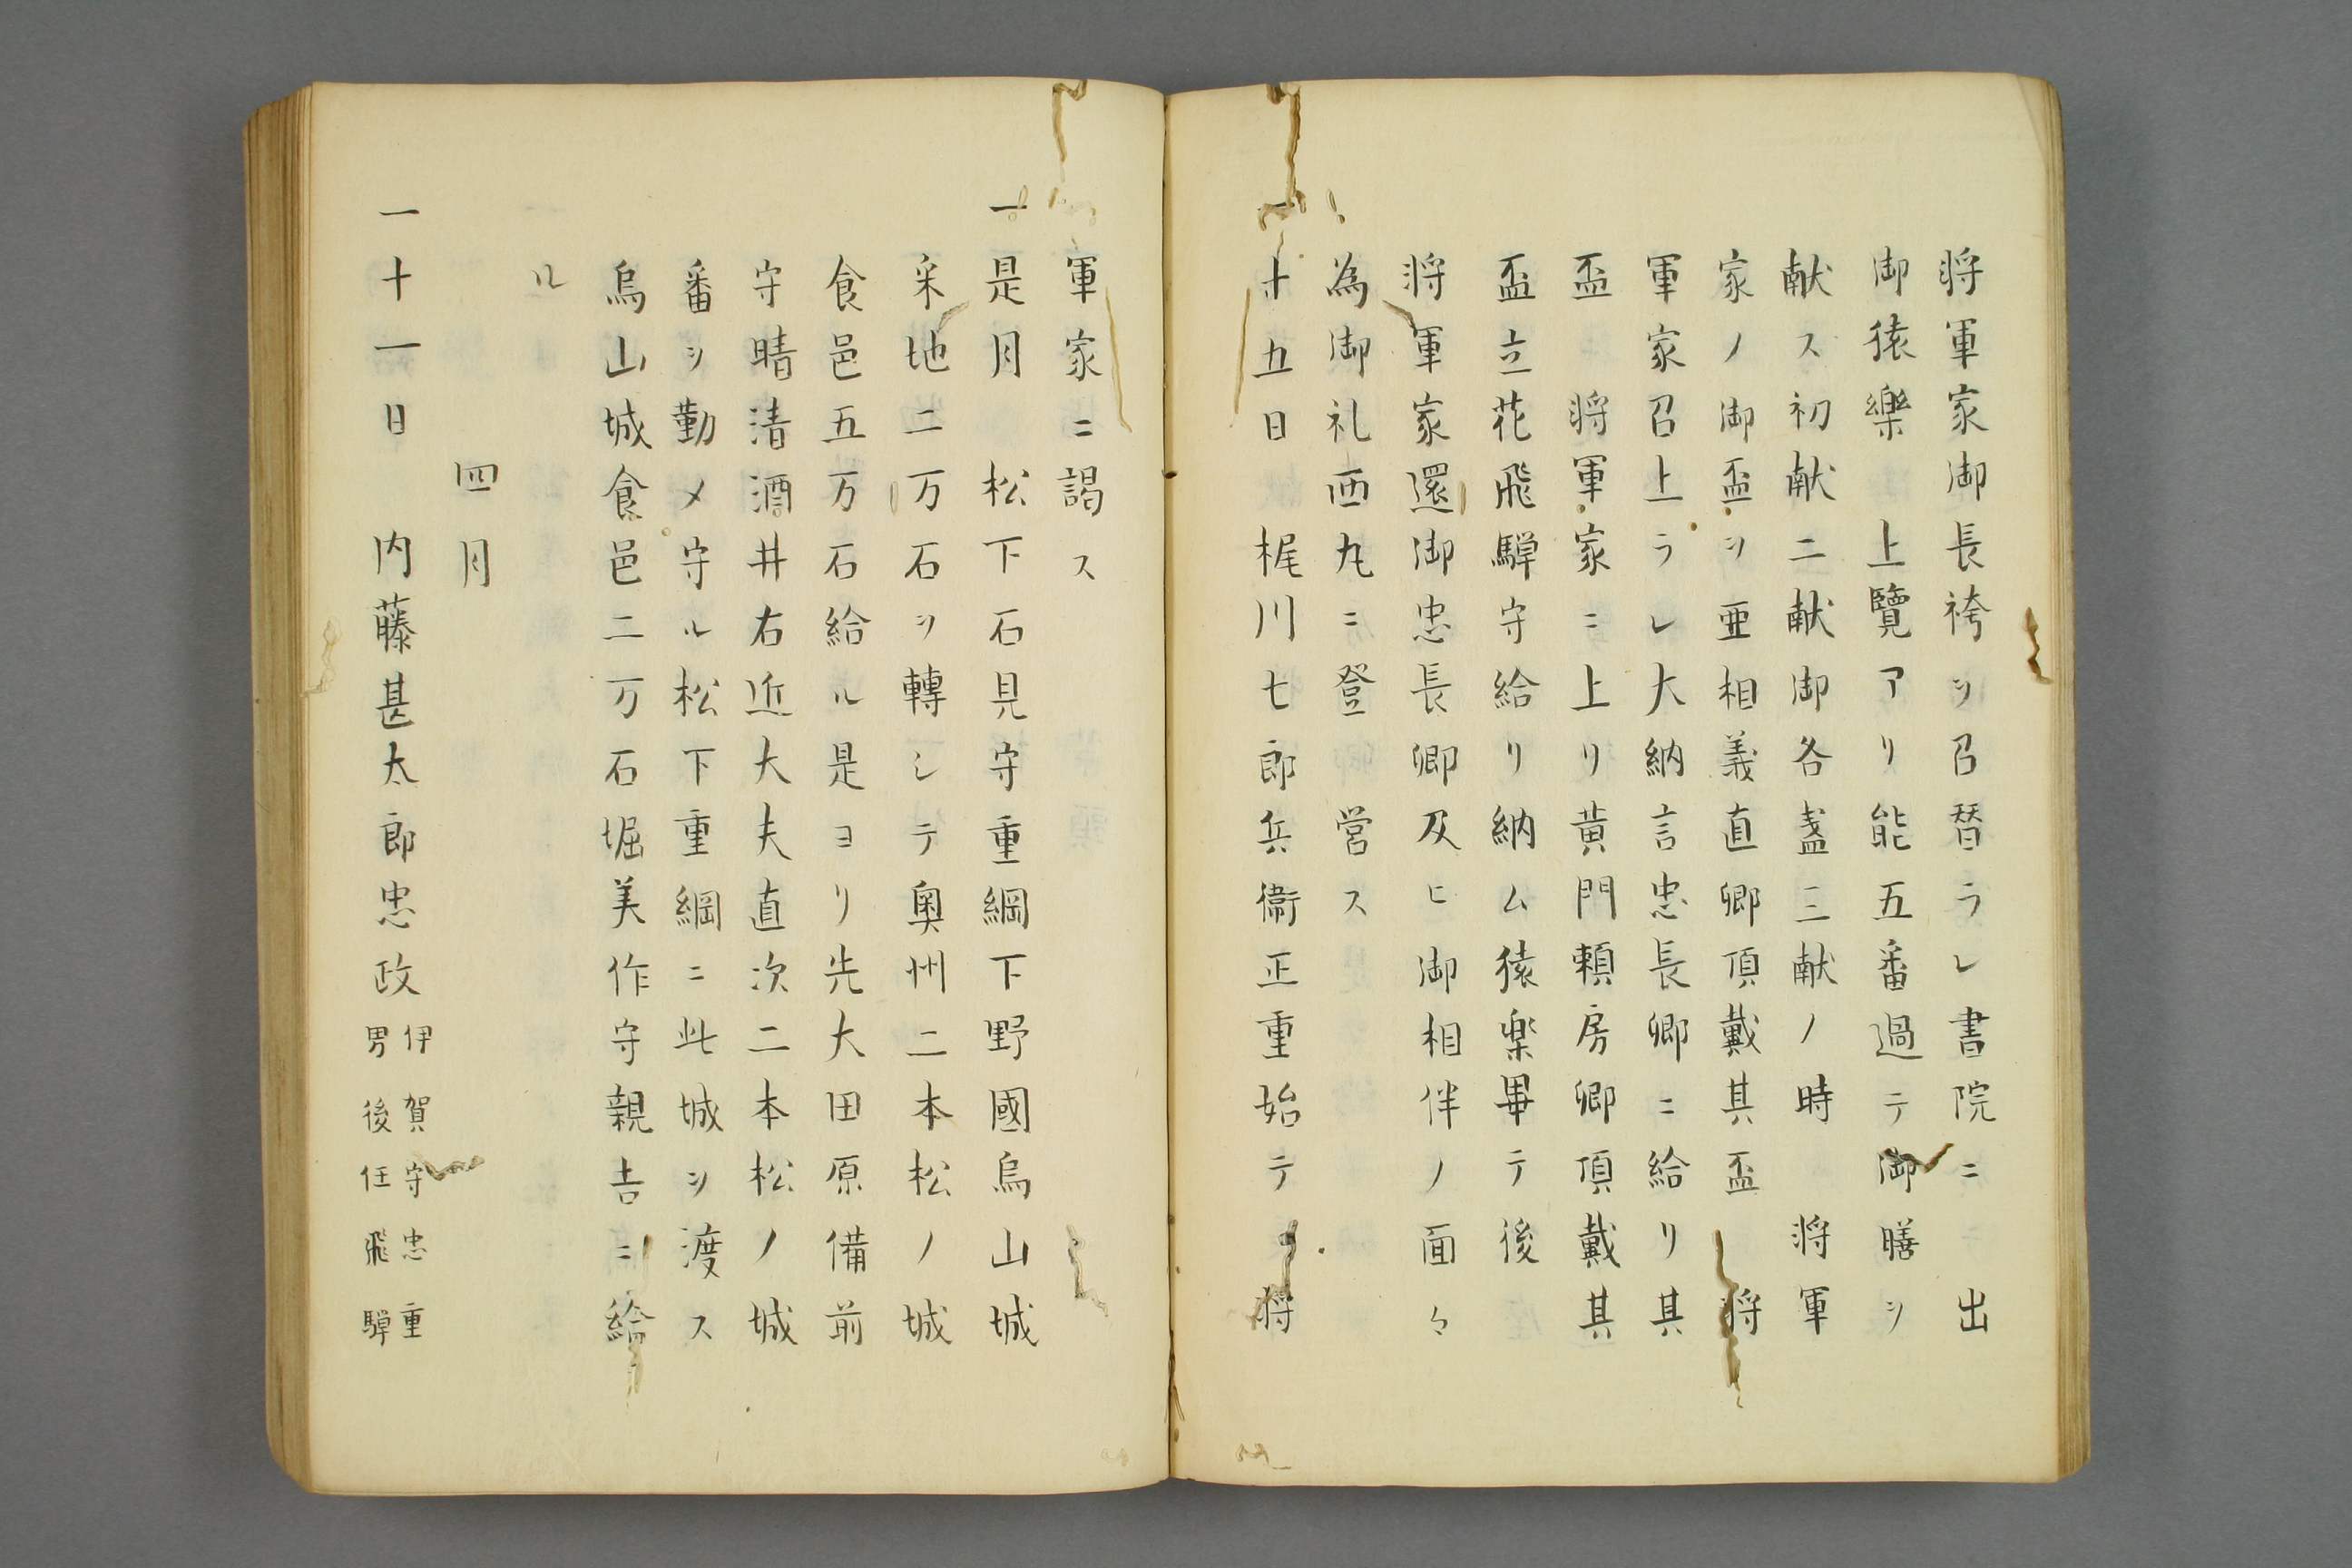 将軍家御長袴ヲ召替ラレ書院ニ 出
御猿樂 上覽アリ能五番過テ御膳ヲ
献ス初献二献御各盞三献ノ時 将軍
家ノ御盃ヲ亜相義直卿頂戴其盃 将
軍家召上ラレ大納言忠長卿ニ給リ其
盃 将軍家ニ上リ黄門頼房卿頂戴其
盃立花飛騨守給リ納ム猿楽畢テ後
将軍家還御忠長卿及ヒ御相伴ノ面々
為御礼西丸ニ登 営ス
一十五日 梶川七郎兵衛正重始テ 将
軍家ニ謁ス
一是月 松下石見守重綱下野國烏山城
采地二万石ヲ轉シテ奥州二本松ノ城
食邑五万石給ル是ヨリ先大田原備前
守晴清酒井右近大夫直次二本松ノ城
番ヲ勤メ守ル松下重綱ニ此城ヲ渡ス
烏山城食邑二万石堀美作守親𠮷ニ給
ル
四月
一十一日 内藤甚太郎忠政伊賀守忠重
男後任飛騨